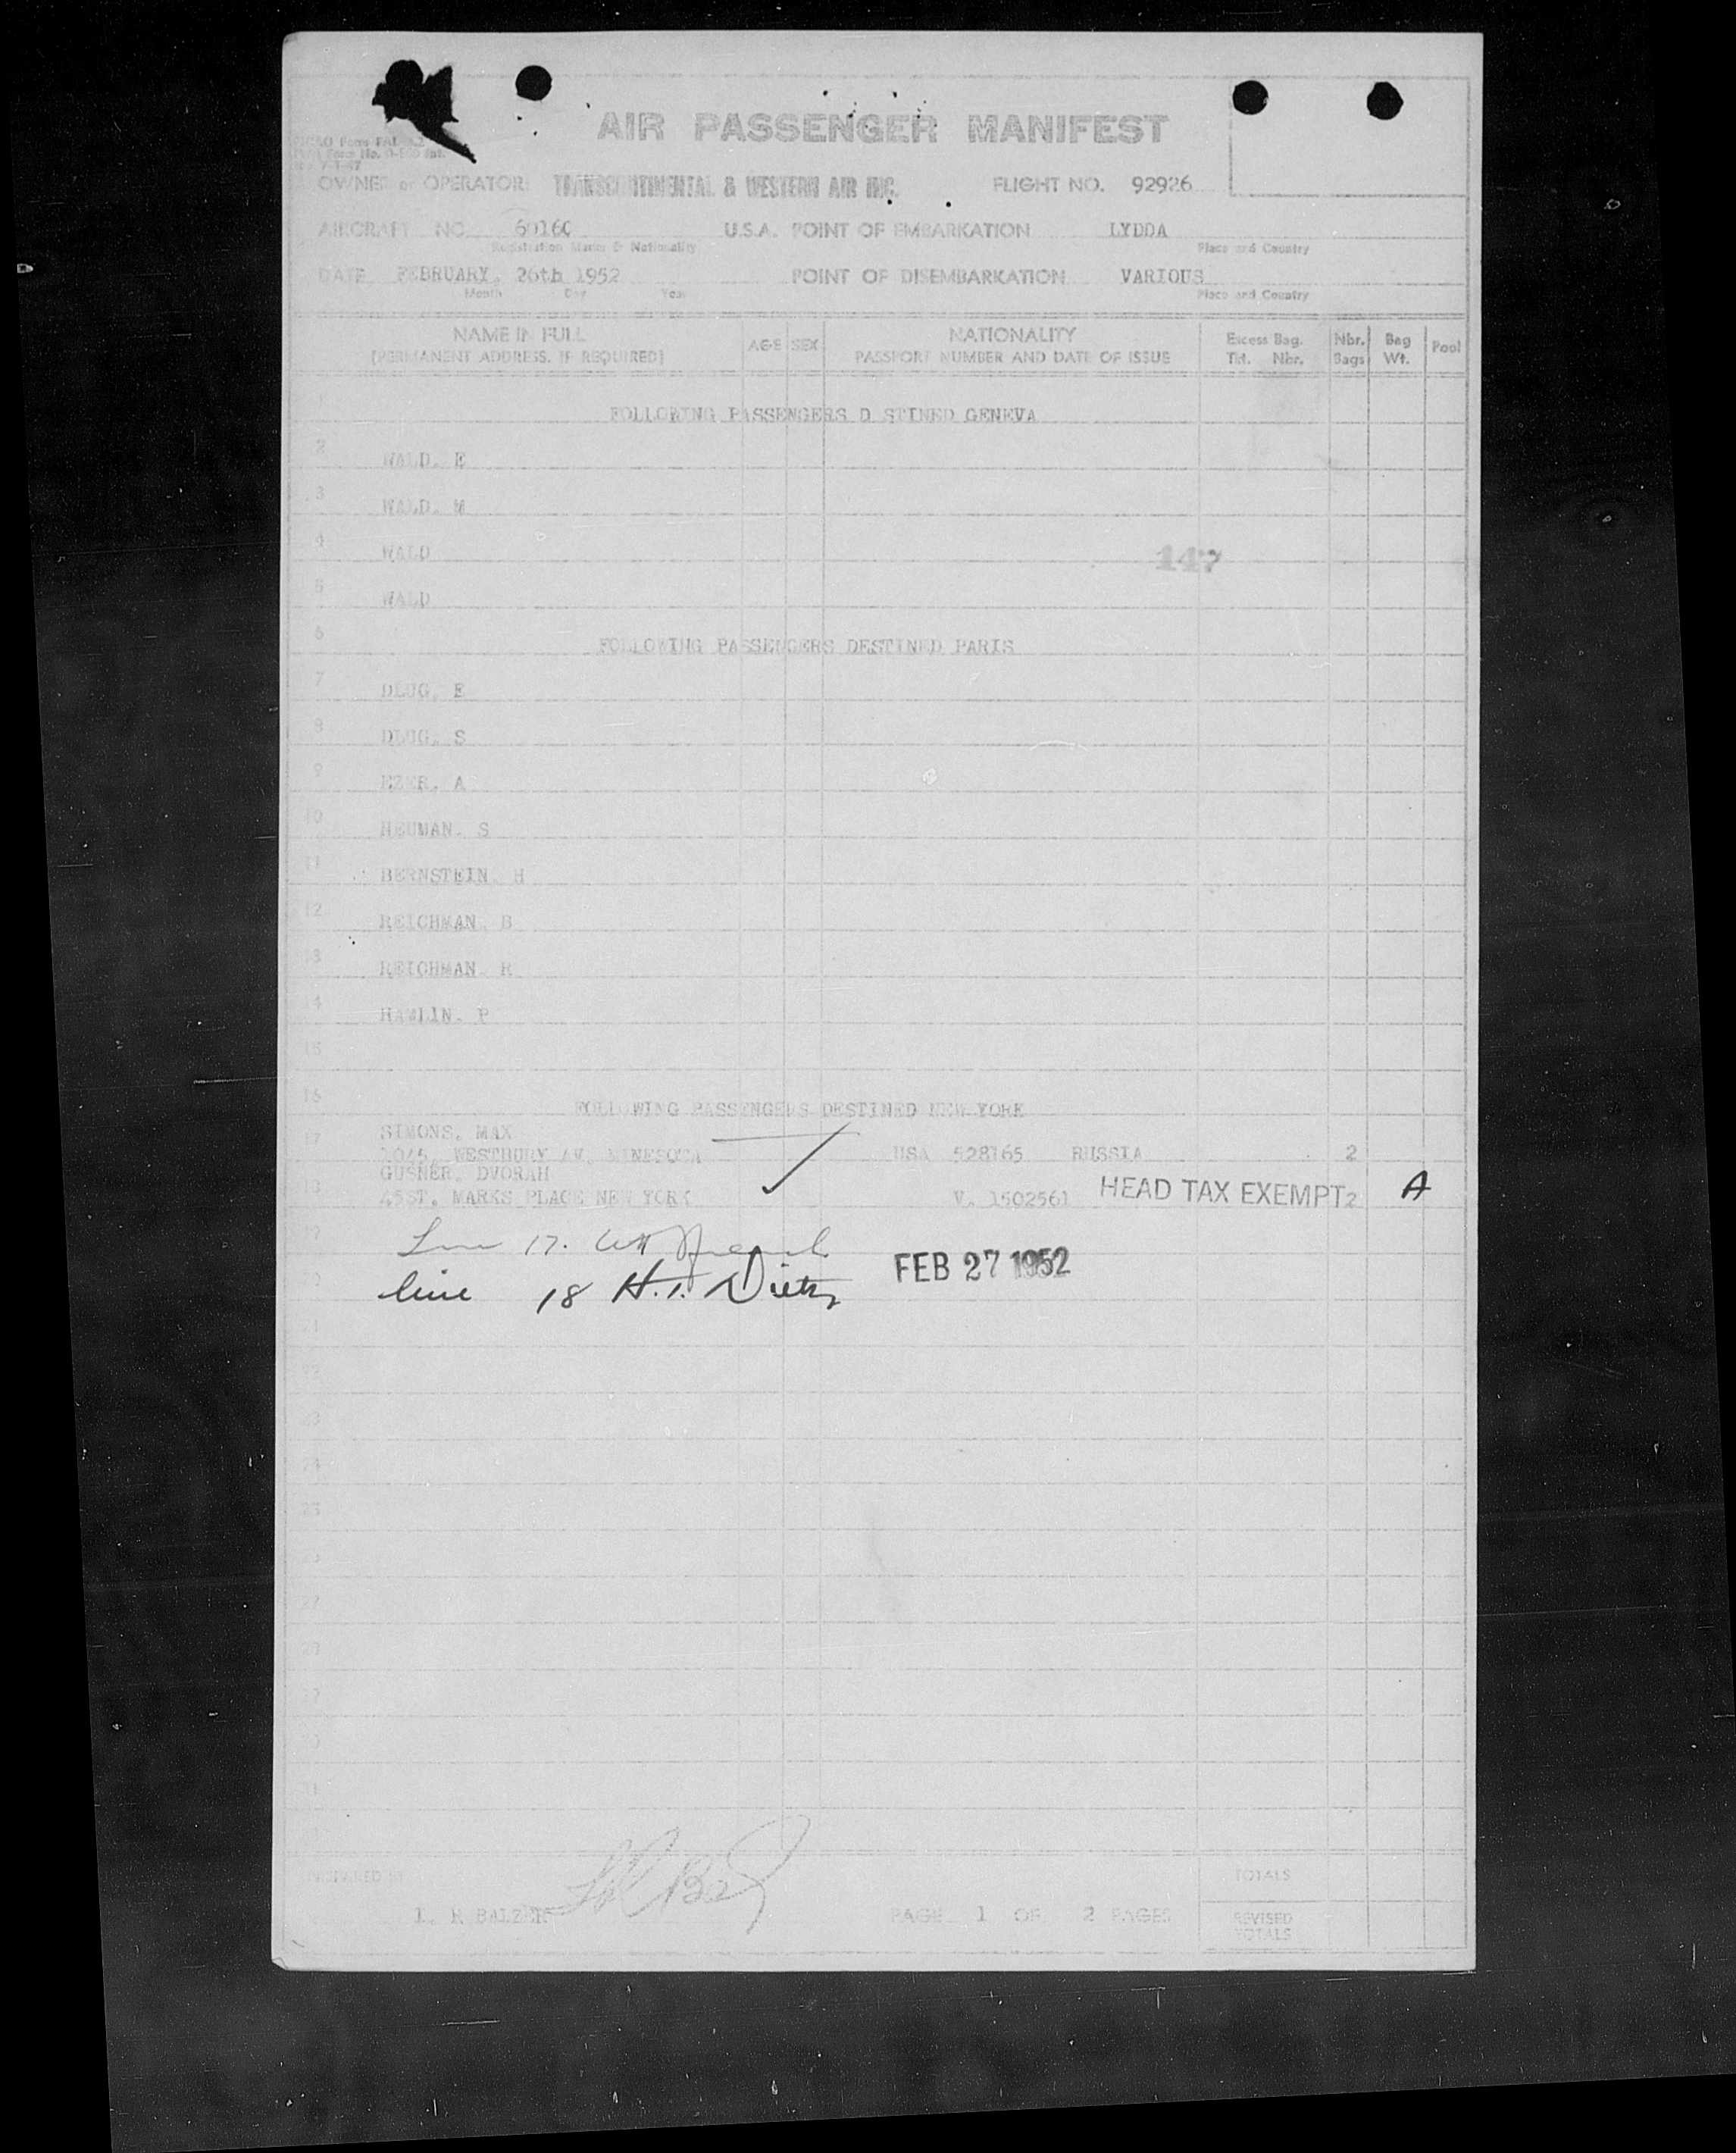 AIR PASSENGER MANIFEST
OWNER or OPERATOR: TRANSCONTINENTAL & WESTERN AIR INC. FLIGHT NO. 92926
AIRCRAFT NO. 6016C U.S.A. POINT OF EMBARKATION LYDDA
Registration Marks & Nationality Place and Country
DATE FEBRUARY, 26th 1952 POINT OF DISEMBARKATION VARIOUS
Month Day Year Place and Country
NAME IN FULL AGE SEX NATIONALITY Excess Bag. Nbr. Bag Pool
(PERMANENT ADDRESS, IF REQUIRED) PASSPORT NUMBER AND DATE OF ISSUE Tkt. Nbr. Bags Wt.
1 FOLLOWING PASSENGERS D STINED GENEVA
2 WALD. E
3 WALD. M
4 WALD 147
5 WALD
6 FOLLOWING PASSENGERS DESTINED PARIS
7 DLUG, E
8 DLUG, S
9 EZER, A
10 NEUMAN. S
11 BERNSTEIN. H
12 REICHMAN. B
13 REICHMAN. R
14 HAMLIN. P
15
16 FOLLOWING PASSENGERS DESTINED NEW YORK
17 SIMONS, MAX
WESTBURY AV. MINESOTA USA 528165 RUSSIA 2
GUSNER, DVORAH
18 45ST. MARKS PLACE NEW YORK V. 1502561 HEAD TAX EXEMPT 2 A
Line 17.
line 18 H. I. Dietz FEB 27 1952
21
22
23
24
25
27
PREPARED BY TOTALS
L. H BALZER PAGE 1 OF 2 PAGES REVISED
TOTALS